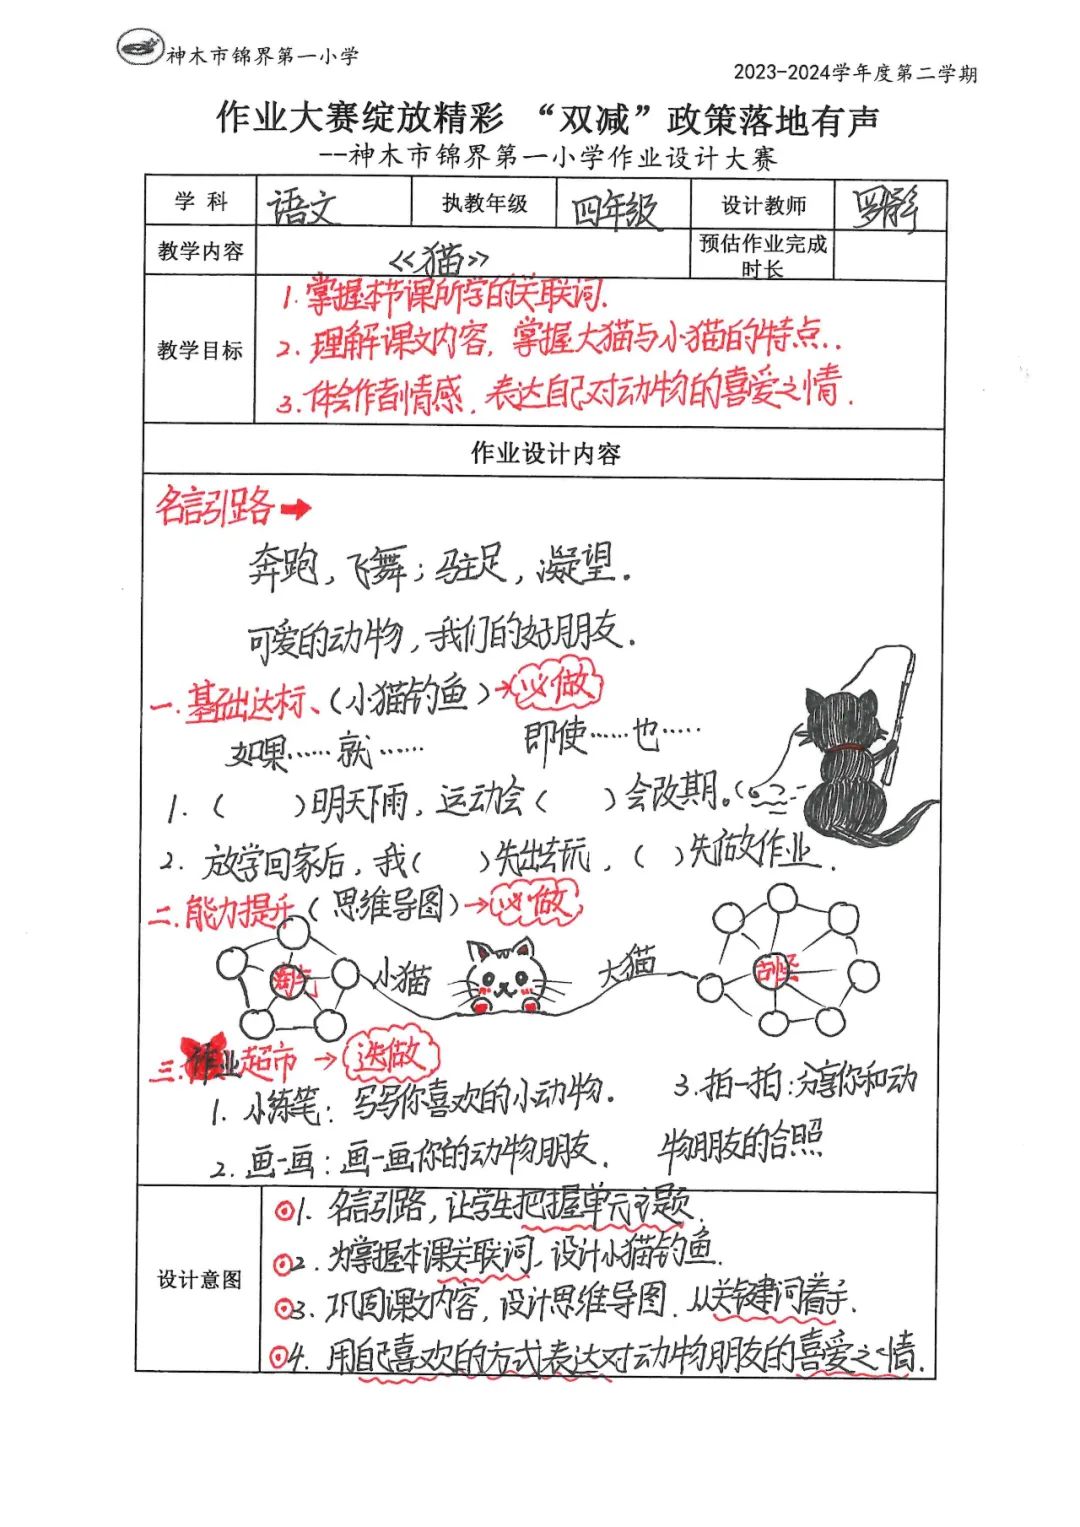 神木市锦界第一小学
2023-2024学年度第二学期
作业大赛绽放精彩 “双减”政策落地有声
--神木市锦界第一小学作业设计大赛
学 科 语文 执教年级 四年级 设计教师
教学内容 《猫》 预估作业完成时长
教学目标
1.掌握本节课所学的关联词.
2.理解课文内容,掌握大猫与小猫的特点..
3.体会作者情感,表达自己对动物的喜爱之情.
作业设计内容
名言引路→
奔跑,飞舞;驻足,凝望.
可爱的动物,我们的好朋友.
一.基础达标、(小猫钓鱼)→必做
如果……就…… 即使……也……
1.( )明天下雨,运动会( )会改期。
2.放学回家后,我( )先出去玩,( )先做作业.
二.能力提升(思维导图)→必做
淘气 小猫 大猫 古怪
三.作业超市→选做
1.小练笔:写写你喜欢的小动物.
3.拍一拍:分享你和动
物朋友的合照
2.画一画:画一画你的动物朋友.
设计意图
1.名言引路,让学生把握单元主题.
2.为掌握本课关联词,设计小猫钓鱼.
3.巩固课文内容,设计思维导图.从关键词着手.
4.用自己喜欢的方式表达对动物朋友的喜爱之情.